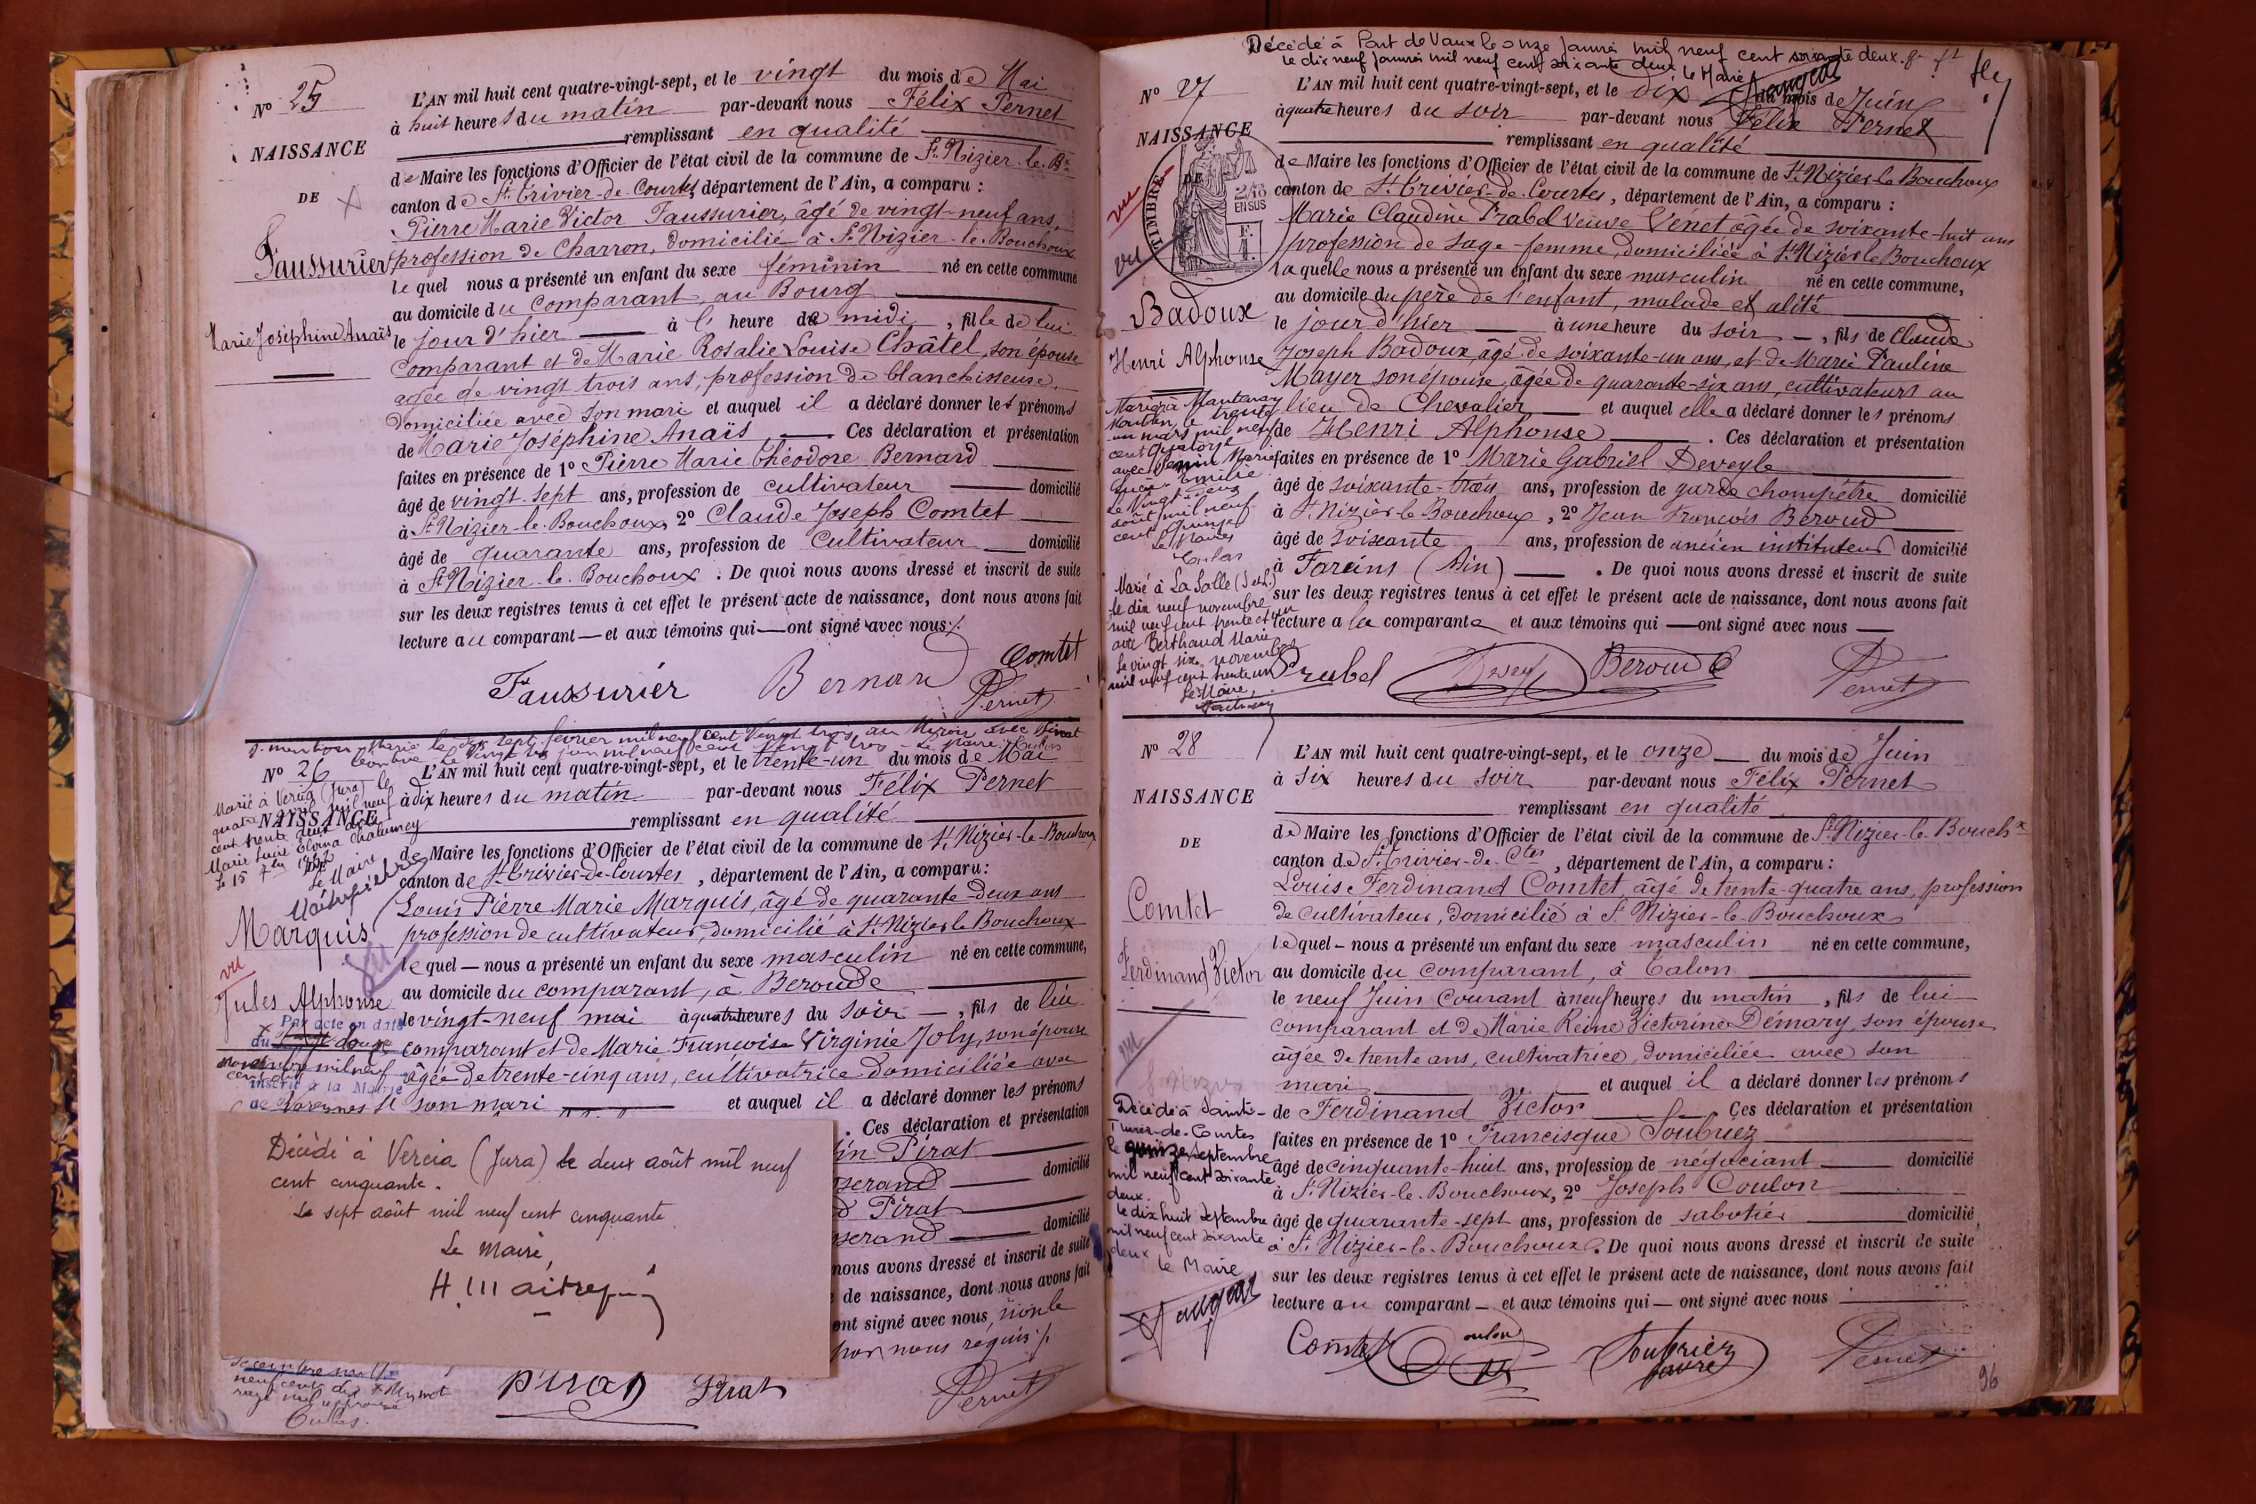 N° 25
NAISSANCE
DE
Faussurier
Marie Joséphine Anaïs
L'AN mil huit cent quatre-vingt-sept, et le vingt du mois de Mai
à huit heures du matin par-devant nous Félix Pernet
remplissant en qualité
de Maire les fonctions d'Officier de l'état civil de la commune de St. Nizier-le-Bx
canton de St. Trivier-de-Courtes, département de l'Ain, a comparu :
Pierre Marie Victor Faussurier, âgé de vingt-neuf ans,
profession de Charron, domicilié à St. Nizier-le-Bouchoux
lequel nous a présenté un enfant du sexe féminin né en cette commune
au domicile du comparant, au Bourg
le jour d'hier à l' heure de midi, fille de lui
comparant et de Marie Rosalie Louise Châtel, son épouse
agée de vingt trois ans, profession de blanchisseuse,
domiciliée avec son mari et auquel il a déclaré donner les prénoms
de Marie Joséphine Anaïs Ces déclaration et présentation
faites en présence de 1° Pierre Marie Théodore Bernard
âgé de vingt-sept ans, profession de cultivateur domicilié
à St. Nizier-le-Bouchoux, 2° Claude Joseph Comtet
âgé de quarante ans, profession de Cultivateur domicilié
à St. Nizier-le-Bouchoux. De quoi nous avons dressé et inscrit de suite
sur les deux registres tenus à cet effet le présent acte de naissance, dont nous avons fait
lecture au comparant — et aux témoins qui — ont signé avec nous
Faussurier Bernard Comtet Pernet
N° 26
Marié à Vercia (Jura) le
quatre mil neuf
NAISSANCE
cent trente deux avec
Marie Chalumey
Le Maire
Marquis
vu
Jules Alphonse
Par acte en date
du
inscrit à la Mairie
L'AN mil huit cent quatre-vingt-sept, et le trente-un du mois de Mai
à dix heures du matin par-devant nous Félix Pernet
remplissant en qualité
de Maire les fonctions d'Officier de l'état civil de la commune de St. Nizier-le-Bouchoux
canton de St. Trivier-de-Courtes, département de l'Ain, a comparu :
Louis Pierre Marie Marquis, âgé de quarante-deux ans
profession de cultivateur, domicilié à St. Nizier le Bouchoux
lequel — nous a présenté un enfant du sexe masculin né en cette commune,
au domicile du comparant, à Beroude
le vingt-neuf mai à quatre heures du soir —, fils de lui
comparant et de Marie Françoise Virginie Joly, son épouse
âgée de trente-cinq ans, cultivatrice domiciliée avec
son mari et auquel il a déclaré donner les prénoms
. Ces déclaration et présentation
in Pirat
serand domicilié
Pirat
serand domicilié
nous avons dressé et inscrit de suite
de naissance, dont nous avons fait
ont signé avec nous, non le
par nous requis
Décédé à Vercia (Jura) le deux août mil neuf
cent cinquante.
Le sept août mil neuf cent cinquante
Le Maire,
Pirat Pirat Pernet
Décédé à Pont de Vaux le onze Janvier mil neuf cent soixante deux.
le dix neuf Janvier mil neuf cent soixante deux le Maire
N° 27
NAISSANCE
DE
TIMBRE
2/10 EN SUS
vu
vu
Badoux
Henri Alphonse
Marié à La Salle
le dix neuf novembre
mil neuf cent trente et un
avec Berthaud Marie
le vingt six novembre
mil neuf cent trente un
Le Maire,
L'AN mil huit cent quatre-vingt-sept, et le dix du mois de Juin
à quatre heures du soir par-devant nous Félix Pernet
remplissant en qualité
de Maire les fonctions d'Officier de l'état civil de la commune de St. Nizier-le-Bouchoux
canton de St. Trivier-de-Courtes, département de l'Ain, a comparu :
Marie Claudine Prabel veuve Vénet âgée de soixante-huit ans
profession de sage-femme, domiciliée à St. Nizier le Bouchoux
laquelle nous a présenté un enfant du sexe masculin né en cette commune,
au domicile du père de l'enfant, malade et alité
le jour d'hier à une heure du soir —, fils de Claude
Joseph Badoux, âgé de soixante-un ans, et de Marie Pauline
Mayer son épouse, âgée de quarante-six ans, cultivateurs au
lieu de Chevalier et auquel elle a déclaré donner les prénoms
de Henri Alphonse . Ces déclaration et présentation
faites en présence de 1° Marie Gabriel Deveyle
âgé de soixante-trois ans, profession de garde champêtre domicilié
à St. Nizier le Bouchoux, 2° Jean François Beroud
âgé de soixante ans, profession de ancien instituteur domicilié
à Fareins (Ain) . De quoi nous avons dressé et inscrit de suite
sur les deux registres tenus à cet effet le présent acte de naissance, dont nous avons fait
lecture à la comparante et aux témoins qui — ont signé avec nous —
Prabel Beroud Pernet
N° 28
NAISSANCE
DE
Comtet
Ferdinand Victor
vu
Décédé à Saint-
Trivier-de-Courtes
le quinze septembre
mil neuf cent soixante
deux.
le dix huit septembre
mil neuf cent soixante
deux
le Maire
L'AN mil huit cent quatre-vingt-sept, et le onze du mois de Juin
à six heures du soir par-devant nous Félix Pernet
remplissant en qualité
de Maire les fonctions d'Officier de l'état civil de la commune de St. Nizier-le-Bouchx
canton de St. Trivier-de-Ctes, département de l'Ain, a comparu :
Louis Ferdinand Comtet, âgé de trente-quatre ans, profession
de cultivateur, domicilié à St. Nizier-le-Bouchoux
lequel — nous a présenté un enfant du sexe masculin né en cette commune,
au domicile du comparant, à Talon
le neuf Juin courant à neuf heures du matin, fils de lui
comparant et de Marie Reine Victorine Démary, son épouse
âgée de trente ans, cultivatrice, domiciliée avec son
mari et auquel il a déclaré donner les prénoms
de Ferdinand Victor Ces déclaration et présentation
faites en présence de 1° Francisque Soubriez
âgé de cinquante-huit ans, profession de négociant domicilié
à St. Nizier-le-Bouchoux, 2° Joseph Coulon
âgé de quarante-sept ans, profession de sabotier domicilié
à St. Nizier-le-Bouchoux. De quoi nous avons dressé et inscrit de suite
sur les deux registres tenus à cet effet le présent acte de naissance, dont nous avons fait
lecture au comparant — et aux témoins qui — ont signé avec nous
Comtet Coulon Soubriez Pernet
96